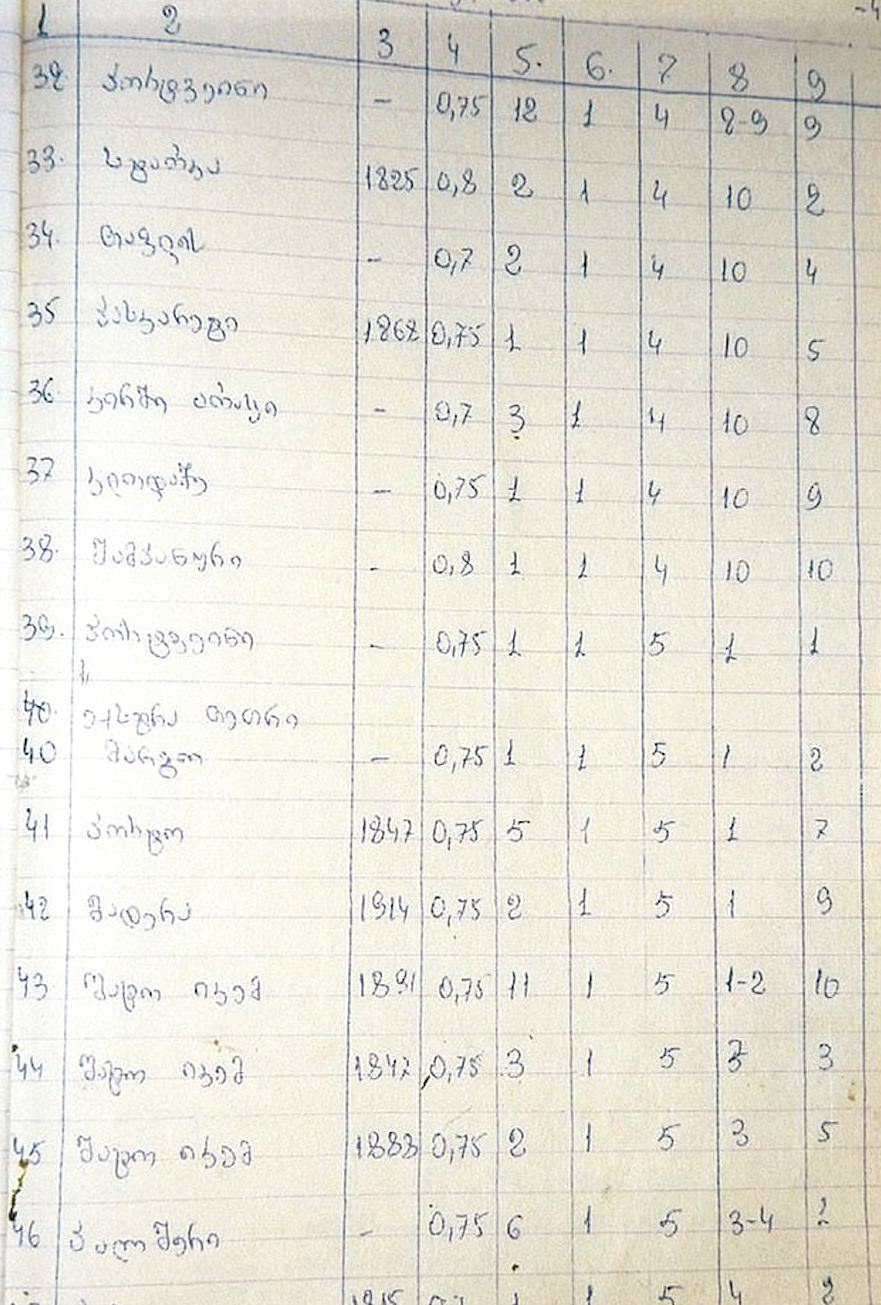 1 2 3 4 5. 6. 7 8 9
32 პორტვეინი - 0,75 12 1 4 8-9 9
33. 1825 0,8 2 1 4 10 2
34. - 0,7 2 1 4 10 4
35 1868 0,75 1 1 4 10 5
36. - 0,7 3 1 4 10 8
37 - 0,75 1 1 4 10 9
38. შამპანური - 0,8 1 1 4 10 10
39. პორტვეინი - 0,75 1 1 5 1 1
40. ექსტრა თეთრი
40 - 0,75 1 1 5 1 2
41 პორტო 1847 0,75 5 1 5 1 7
42 მადერა 1914 0,75 2 1 5 1 9
43 შატო იკემ 1891 0,75 11 1 5 1-2 10
44 შატო იკემ 1847 0,75 3 1 5 3 3
45 შატო იკემ 1888 0,75 2 1 5 3 5
46 - 0,75 6 1 5 3-4 2
1 1 5 4 2